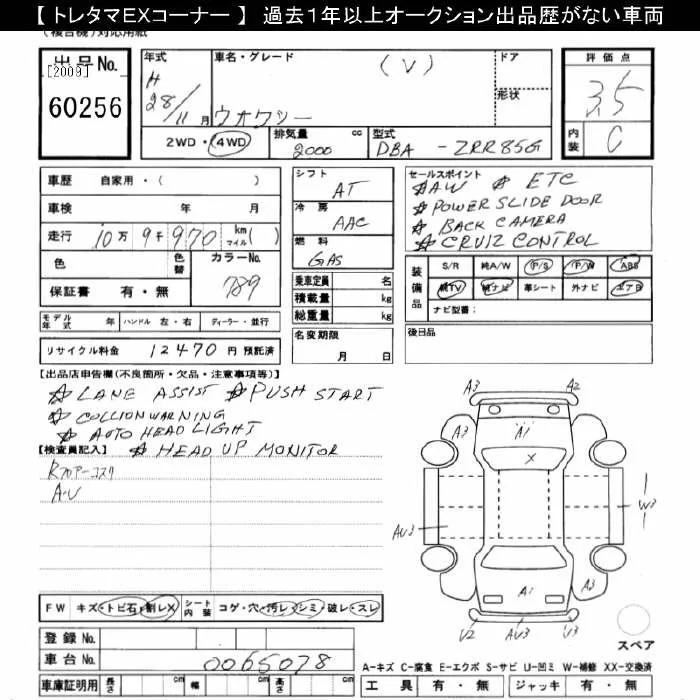 【 トレタマEXコーナー 】 過去1年以上オークション出品歴がない車両
(複合機)対応用紙
出品No.
[2009]
60256
年式
H 28/11月
車名・グレード
(V)
ウオクシー
ドア
形状
2WD・4WD
排気量 2000 cc
型式 DBA - ZRR85G
評価点
3.5
内装 C
車歴 自家用・( )
車検 年 月
走行 10万 9千 970 km マイル( )
色 色替 カラーNo. 789
保証書 有・無
シフト AT
冷房 AAC
燃料 GAS
乗車定員 名
積載量 kg
総重量 kg
名変期限 月 日
セールスポイント
☆AW ☆ ETC
☆POWER SLIDE DOOR
☆ BACK CAMERA
☆ CRUIZ CONTROL
装備品
S/R 純A/W P/S P/W ABS
純TV 純ナビ 革シート 外ナビ エアB
ナビ型番:
モデル年式 年 ハンドル 左・右 ディーラー・並行
リサイクル料金 12470 円 預託済
後日品
【出品店申告欄(不良箇所・欠品・注意事項等)】
☆ LANE ASSIST ☆PUSH START
☆ COLLIONWARNING
☆ AUTO HEAD LIGHT
【検査員記入】 ☆ HEAD UP MONITOR
A-U
A3 A2
A3 A1
X
AU3 W3
A1 A3
V2 AU3 U3
FW キズ・トビ石・割レX シート内装 コゲ・穴・汚レ・シミ・破レ・スレ
スペア
登録No.
車台No. 0065078
A－キズ C－腐食 E－エクボ S－サビ U－凹ミ W－補修 XX－交換済
車庫証明用 長さ cm 幅 cm 高さ cm
工具 有・無 ジャッキ 有・無